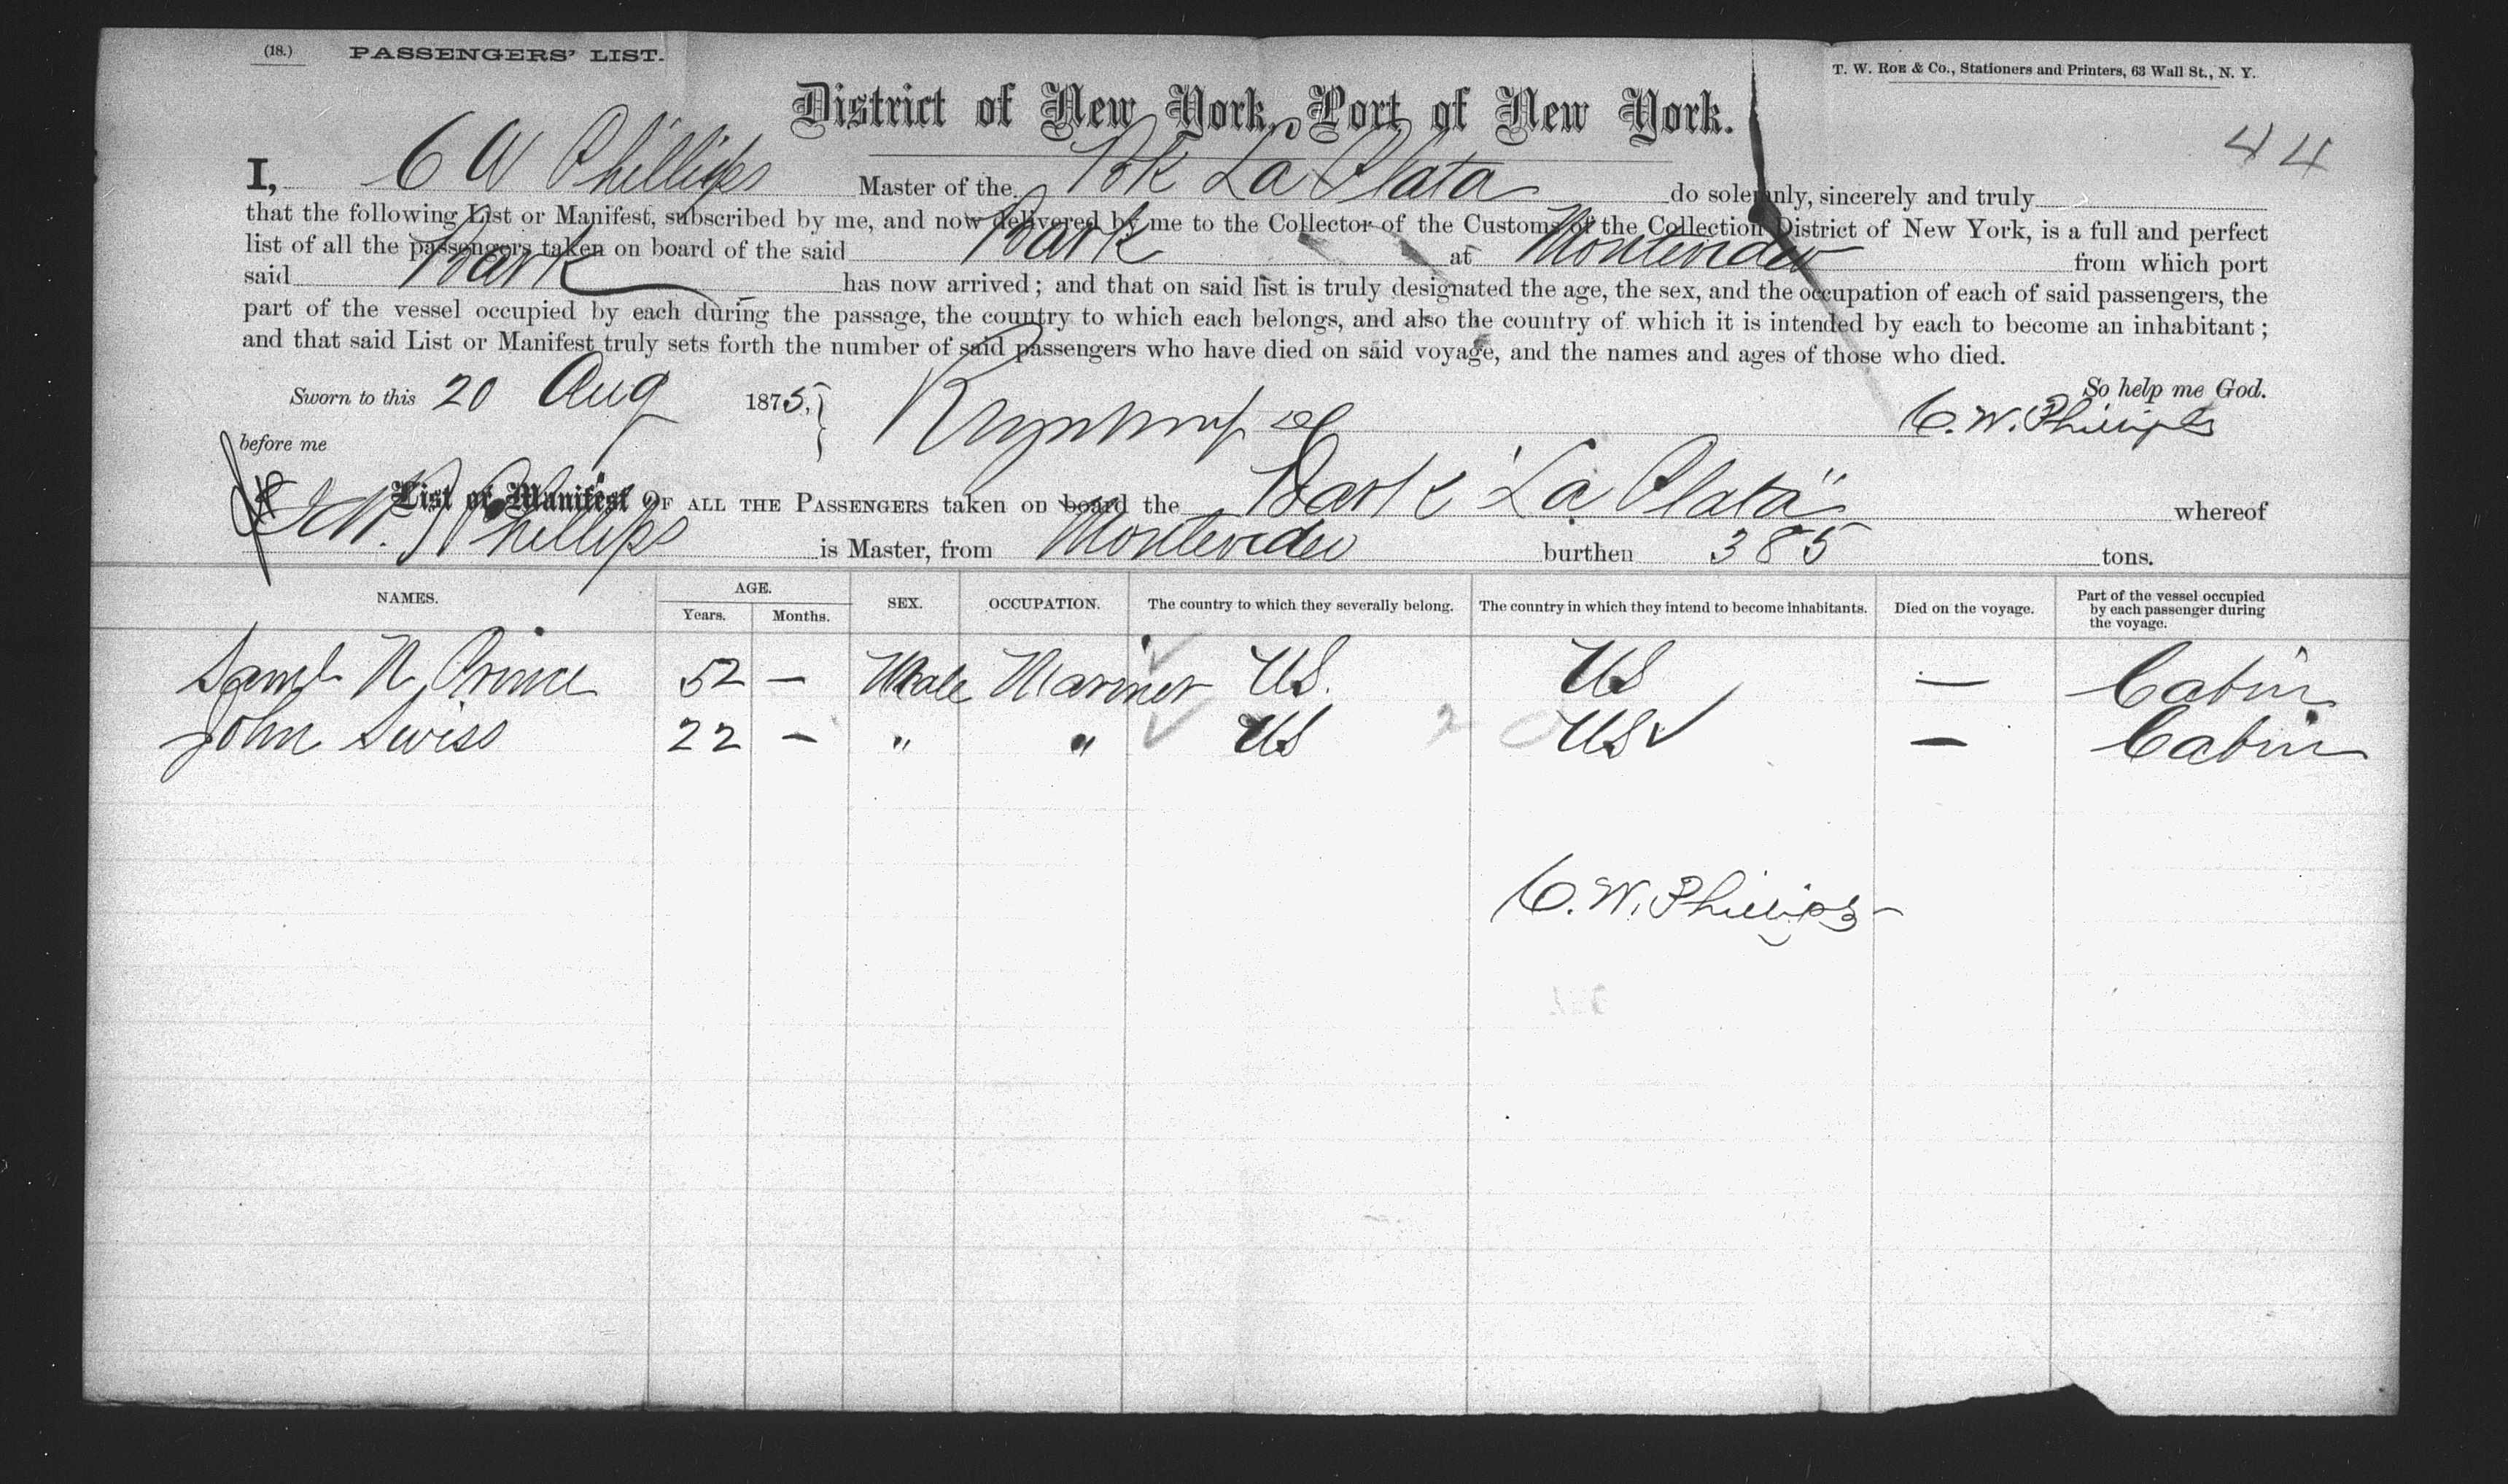 (18.) PASSENGERS' LIST.
T. W. ROE & Co., Stationers and Printers, 63 Wall St., N. Y.
District of New York, Port of New York.
44
I, C W Phillips Master of the Bk La Plata do solemnly, sincerely and truly
that the following List or Manifest, subscribed by me, and now delivered by me to the Collector of the Customs of the Collection District of New York, is a full and perfect
list of all the passengers taken on board of the said Bark at Montevideo from which port
said Bark has now arrived; and that on said list is truly designated the age, the sex, and the occupation of each of said passengers, the
part of the vessel occupied by each during the passage, the country to which each belongs, and also the country of which it is intended by each to become an inhabitant;
and that said List or Manifest truly sets forth the number of said passengers who have died on said voyage, and the names and ages of those who died.
So help me God.
Sworn to this 20 Aug 1875,
C. W. Phillips
before me
List or Manifest OF ALL THE PASSENGERS taken on board the Bark "La Plata" whereof
W. Phillips is Master, from Montevideo burthen 385 tons.
NAMES. AGE. Years. Months. SEX. OCCUPATION. The country to which they severally belong. The country in which they intend to become inhabitants. Died on the voyage. Part of the vessel occupied by each passenger during the voyage.
Saml N Prince 52 — Male Mariner US. US — Cabin
John Swiss 22 — " " US 2 US — Cabin
C. W. Phillips